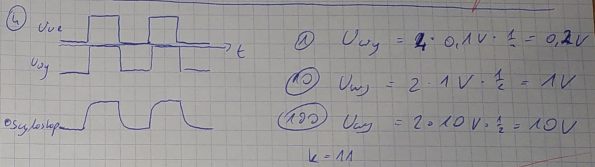 4
Uwe
t
Uwy
oscyloskop
① Uwy = 2 · 0,1V · 1/2 = 0,2V
⑩ Uwy = 2 · 1V · 1/2 = 1V
(100) Uwy = 2 · 10V · 1/2 = 10V
k = 11